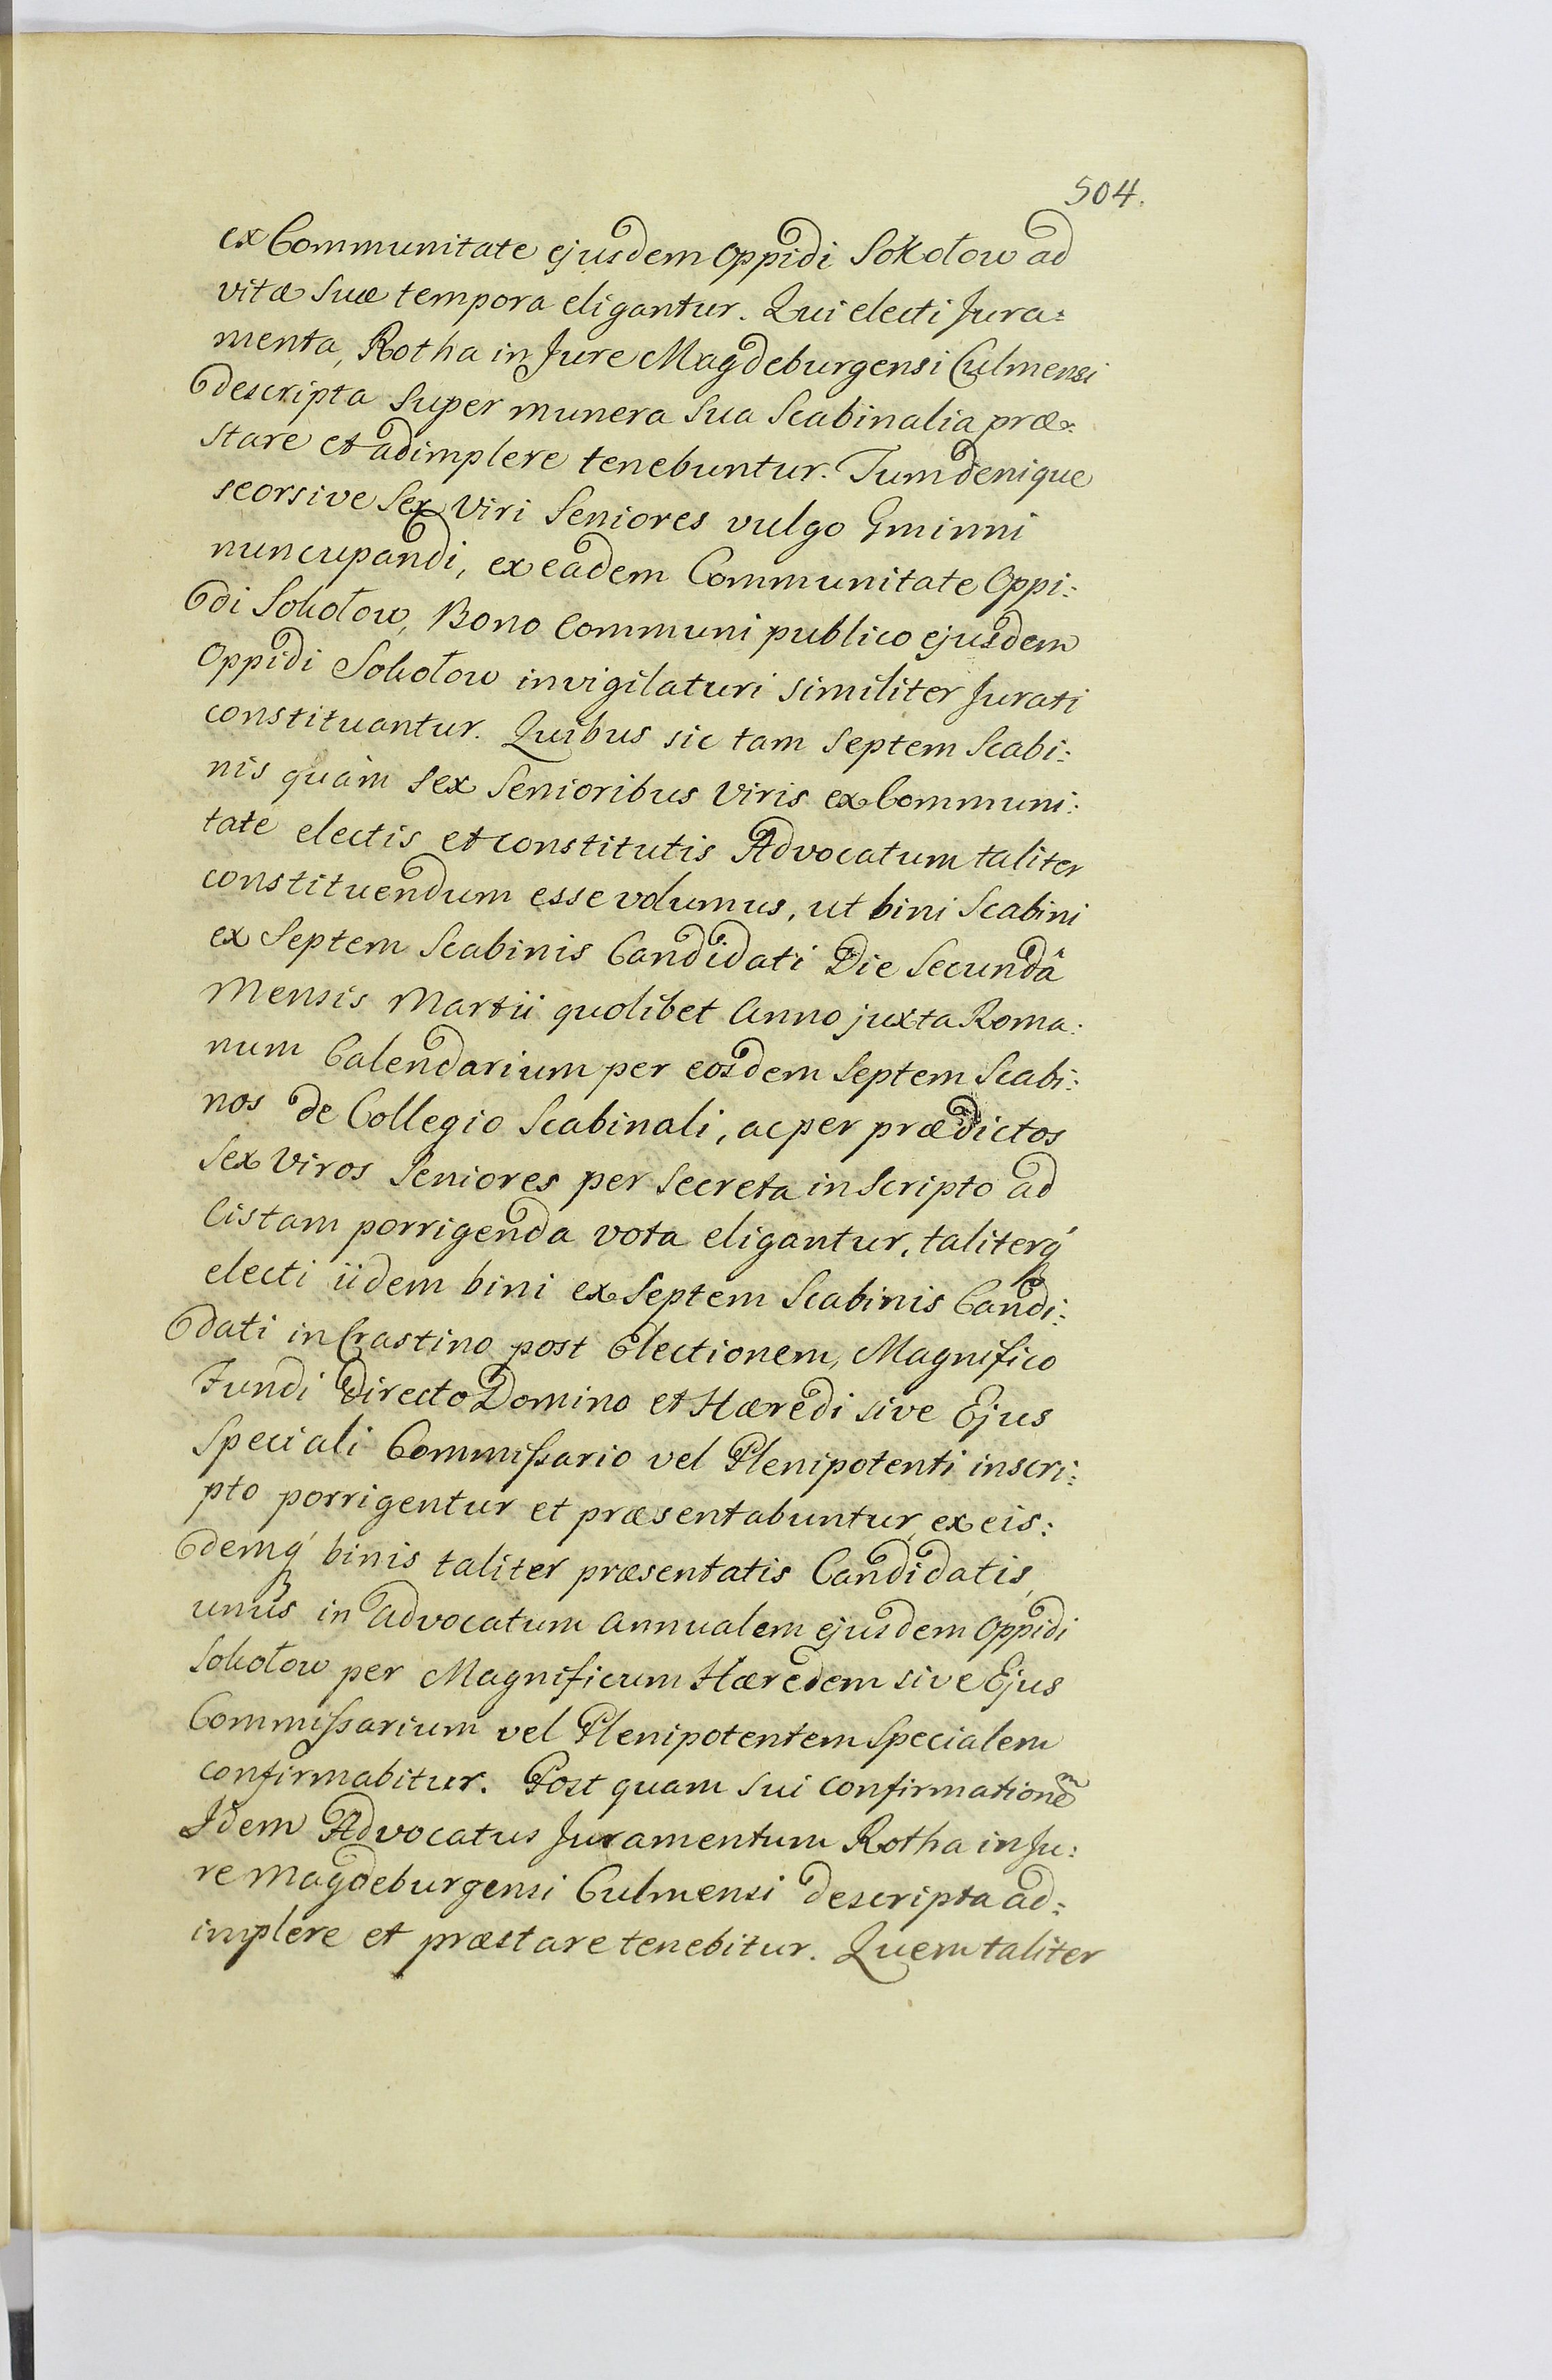 504.
ex Communitate ejusdem Oppidi Sokołow ad
vitæ suæ tempora eligantur. Qui electi Jura=
menta, Rotha in Jure Magdeburgensi Culmensi
descripta super munera sua Scabinalia præ=
stare et adimplere tenebuntur. Tum denique
seorsive Sex Viri Seniores vulgo Gminni
nuncupandi, ex eadem Communitate Oppi:
di Sokołow, Bono Communi publico ejusdem
Oppidi Sokołow invigilaturi similiter Jurati
constituantur. Quibus sic tam Septem Scabi:
nis quàm sex Senioribus Viris ex Communi:
tate electis et constitutis Advocatum taliter
constituendum esse volumus, ut bini Scabini
ex Septem Scabinis Candidati Die Secundâ
Mensis Martii quolibet Anno juxta Roma:
num Calendarium per eosdem Septem Scabi:
nos de Collegio Scabinali, ac per prædictos
Sex Viros Seniores per Secreta in Scripto ad
Cistam porrigenda vota eligantur, taliterq́
electi iidem bini ex Septem Scabinis Candi:
dati in Crastino post Electionem, Magnifico
Fundi Directo Domino et Hæredi sive Ejus
Speciali Commissario vel Plenipotenti inscri:
pto porrigentur et præsentabuntur, ex eis:
demq́ binis taliter præsentatis Candidatis,
unus in Advocatum Annualem ejusdem Oppidi
Sokołow per Magnificum Hæredem sive Ejus
Commissarium vel Plenipotentem Specialem
confirmabitur. Post quam sui confirmationem
Idem Advocatus Juramentum Rotha in Ju:
re Magdeburgensi Culmensi descripta ad=
implere et præstare tenebitur. Quem taliter